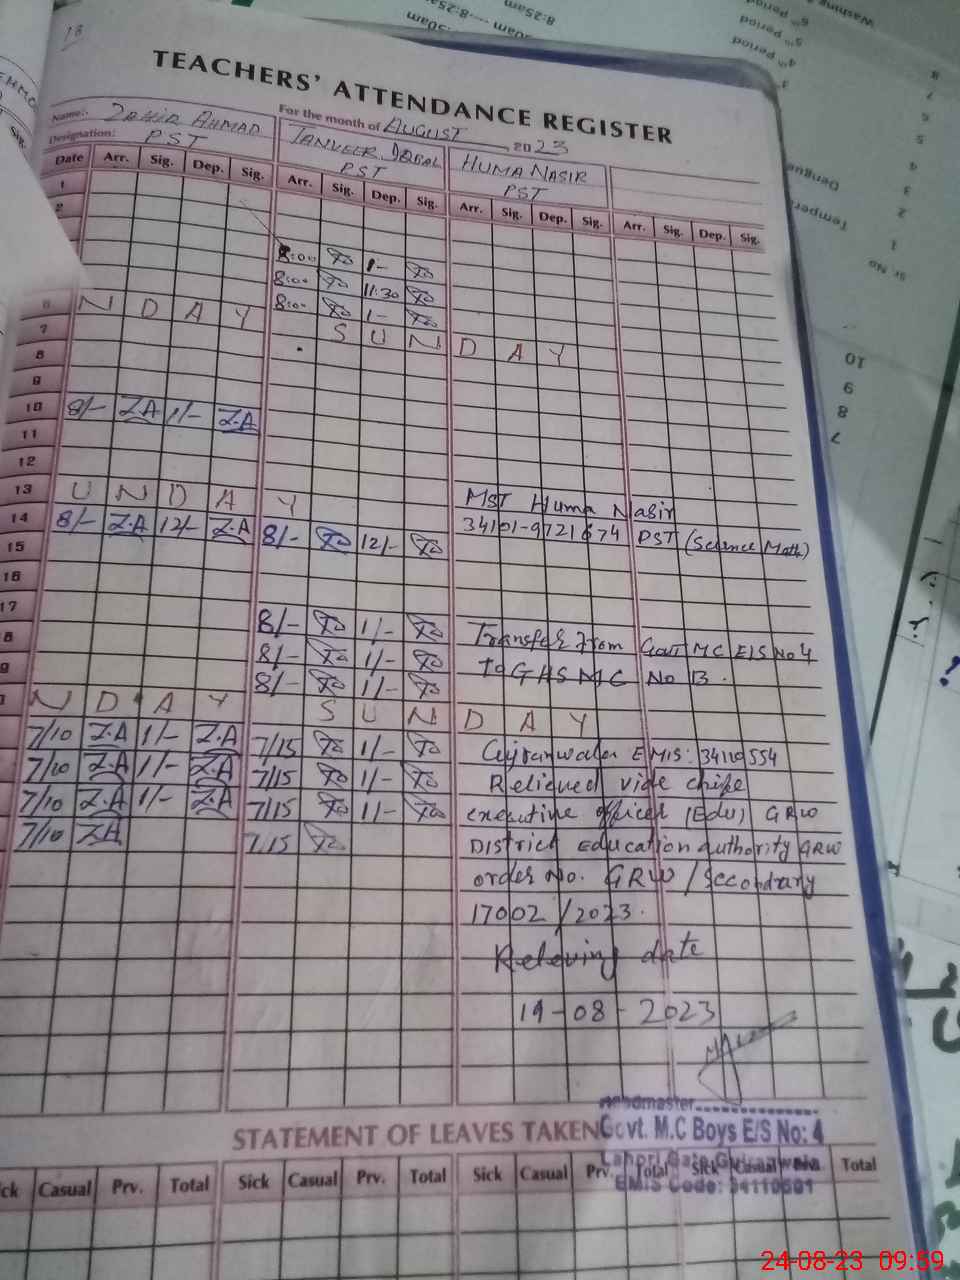 18
TEACHERS' ATTENDANCE REGISTER
Name: ZAHID AHMAD
For the month of AUGUST 2023
Designation: PST
TANVEER IQBAL
PST
HUMA NASIR
PST
Date Arr. Sig. Dep. Sig. Arr. Sig. Dep. Sig. Arr. Sig. Dep. Sig. Arr. Sig. Dep. Sig.
1
2
8:00 1-
8:00 11:30
8:00 1-
6 N D A Y
7 S U N D A Y
8
9
10 8/- Z.A 1/- Z.A
11
12
13 U N D A Y MST Huma Nasir
14 8/- Z.A 12/- Z.A 8/- 12/- 34101-9721674 PST (Science Math)
15
16
17
8 8/- 1/- Transfer from Govt MC E/S No 4
9 8/- 1/- To GHS MC No B.
8/- 1/-
N D A Y S U N D A Y
7/10 Z.A 1/- Z.A 7/15 1/- Gujranwala EMIS: 34110554
7/10 Z.A 1/- Z.A 7/15 1/- Relieved vide chife
7/10 Z.A 1/- Z.A 7/15 1/- executive officer (Edu) GRW
7/10 Z.A 7/15 District Education authority GRW
order No. GRW/Secondary
17002/2023.
Releving date
19-08-2023
Headmaster
Govt. M.C Boys E/S No: 4
Lahori Gate Gujranwala
EMIS Code: 34110601
STATEMENT OF LEAVES TAKEN
ick Casual Prv. Total Sick Casual Prv. Total Sick Casual Prv. Total Sick Casual Prv. Total
8:25am
Washing
6th Period
5th Period
4th Period
Dengue
Temper
Sr. No
1
2
3
4
5
6
7
8
7
8
9
10
24-08-23 09:59